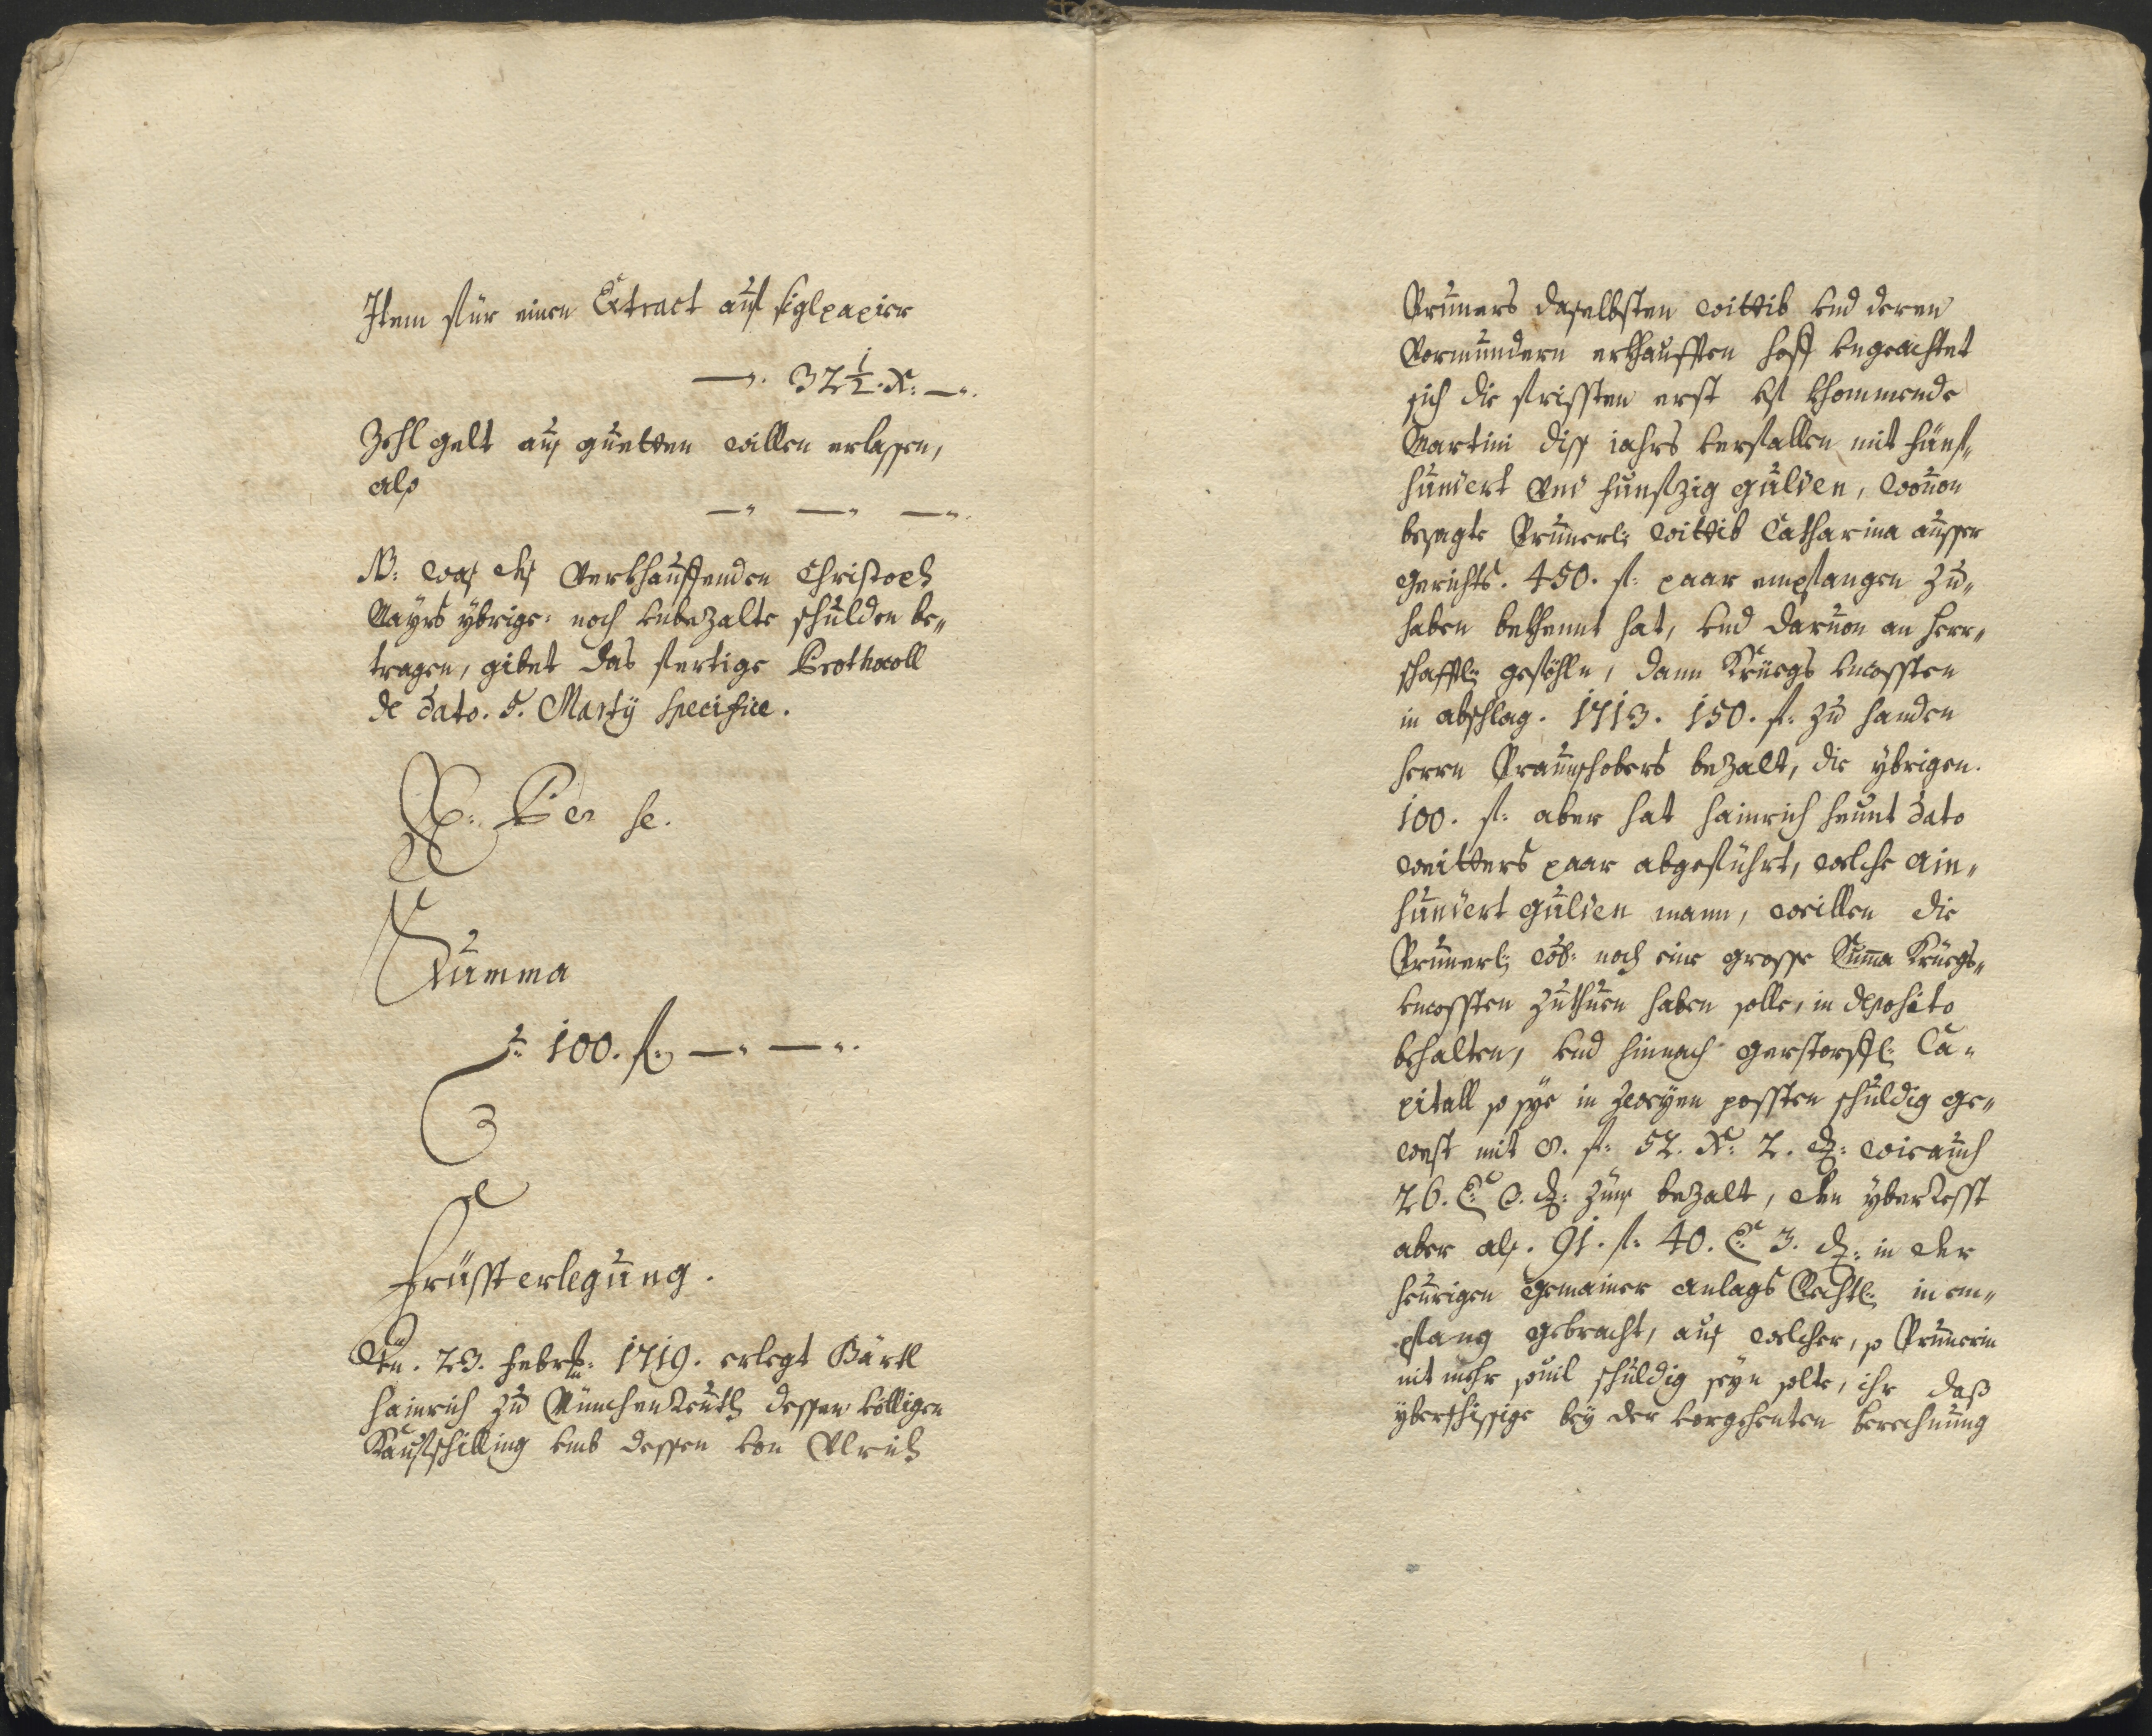 Item für einen Extract auf siglpapier
—. 32 1/2. x: —.
Zehlgelt auß guetten willen erlassen,
alß
— — —.
NB: waß deß Verkhauffenden Christoph
Mayrs ybrige: noch unbezalte schulden be„
tragen, gibet das fertige Prothocoll
de dato. 5. Marty specifice.
Per se.
Summa
100. fl: — —.
Früsst erlegung.
Den. 23. Febr: 1719. erlegt Bärtl
Hainrich zu Münchenreuth dessen völligen
Kaufschilling umb dessen von Ulrich
Prunners daselbsten wittib und deren
Vormundern erkhaufften hoff ungeachtet
sich die fristen erst uf khommende
Martini diß jahrs verfallen mit fünf„
hundert und funfzig gulden, wouon
besagte Prunnerl: wittib Catharina ausser
gerichts. 450. fl: paar empfangen zu„
haben bekhennt hat, und daruon an herr„
schafftl: geföhln, dann Kriegs uncossten
in abschlag. 1713. 150. fl: zu handen
herrn Praunschobers bezalt, die ybrigen.
100. fl: aber hat Hainrich heunt dato
weitters paar abgeführt, welche ain„
hundert gulden mann, weillen die
Prunnerl: wb: noch eine grosse Summa Kriegs„
uncossten zuthuen haben solle, in deposito
behalten, und hinnach gerstorffl: Ca„
pitall so sye in zweyen possten schuldig ge„
west mit 8. fl: 52. x: 2. d: wie auch
26. x: 3. d: zünß bezalt, den yberresst
aber alß. 91. fl: 40. x: 3. d: in der
heurigen gemainer anlags Rechtl: in em„
pfang gebracht, auß welcher, so Prunnerin
nit mehr souil schuldig seyn solte, ihr daß
yberschissige bey der vorgehenten berechnung